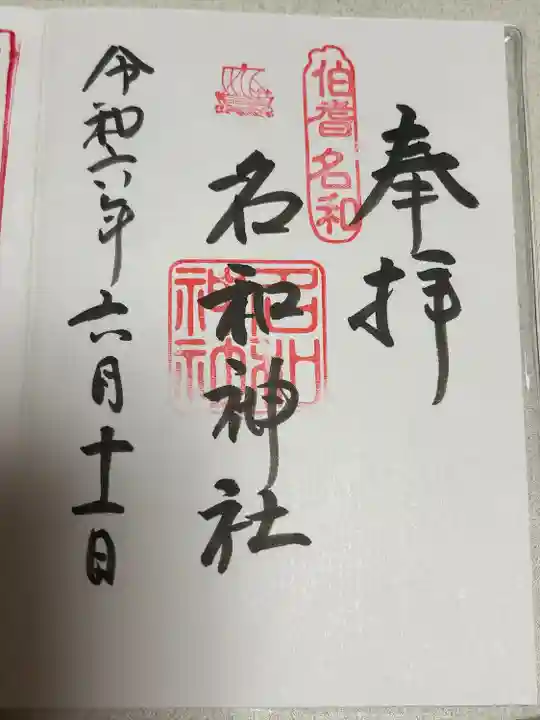 奉拝
伯耆名和
名和神社
名和神社
令和六年六月十一日